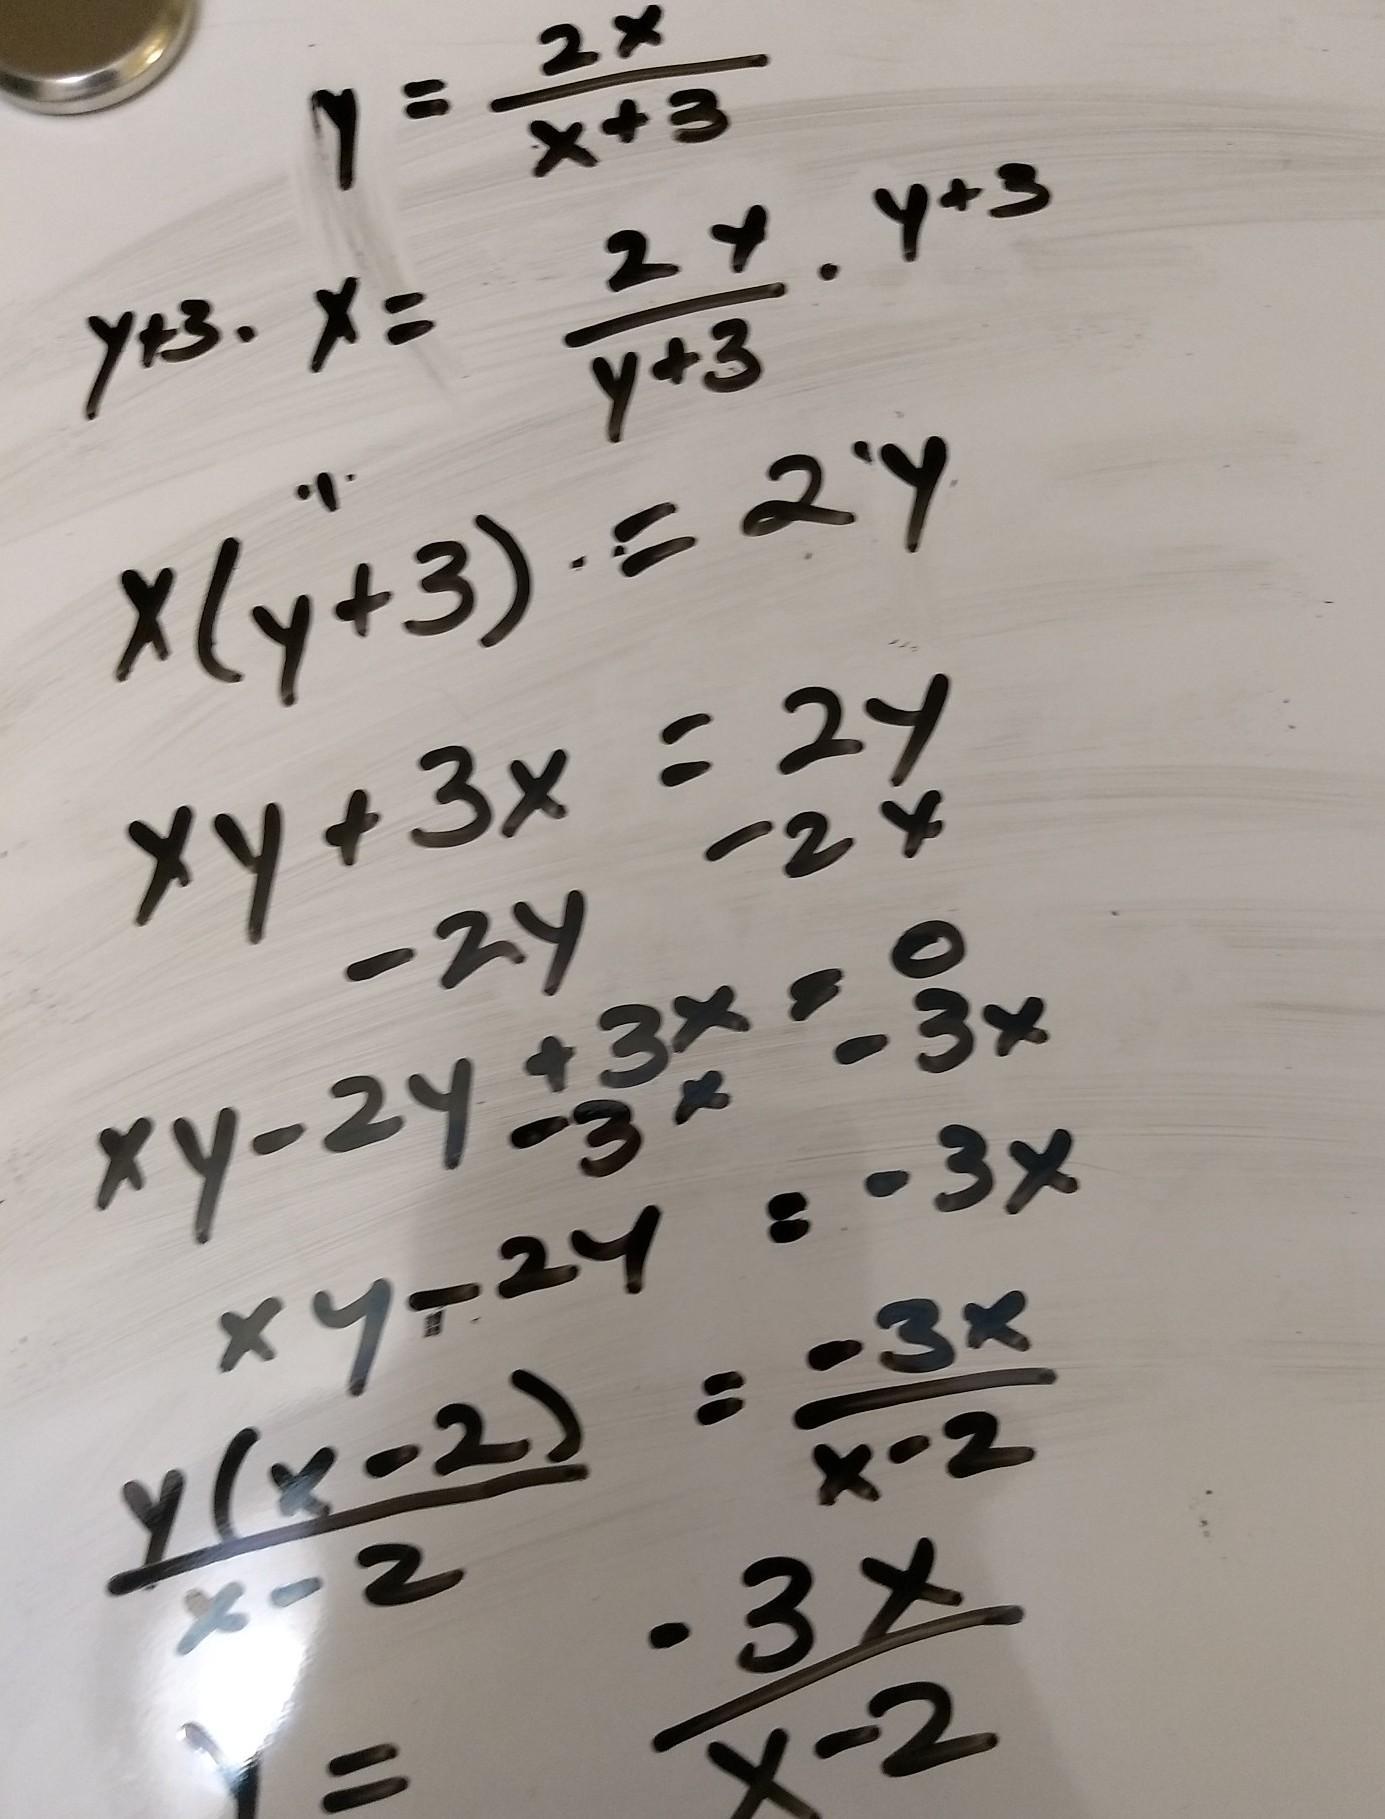 y = 2x / x+3
y+3 · x = 2y / y+3 · y+3
x(y+3) = 2y
xy + 3x = 2y
-2y -2y
xy-2y +3x = 0
-3x -3x
xy-2y = -3x
y(x-2) / x-2 = -3x / x-2
y = -3x / x-2